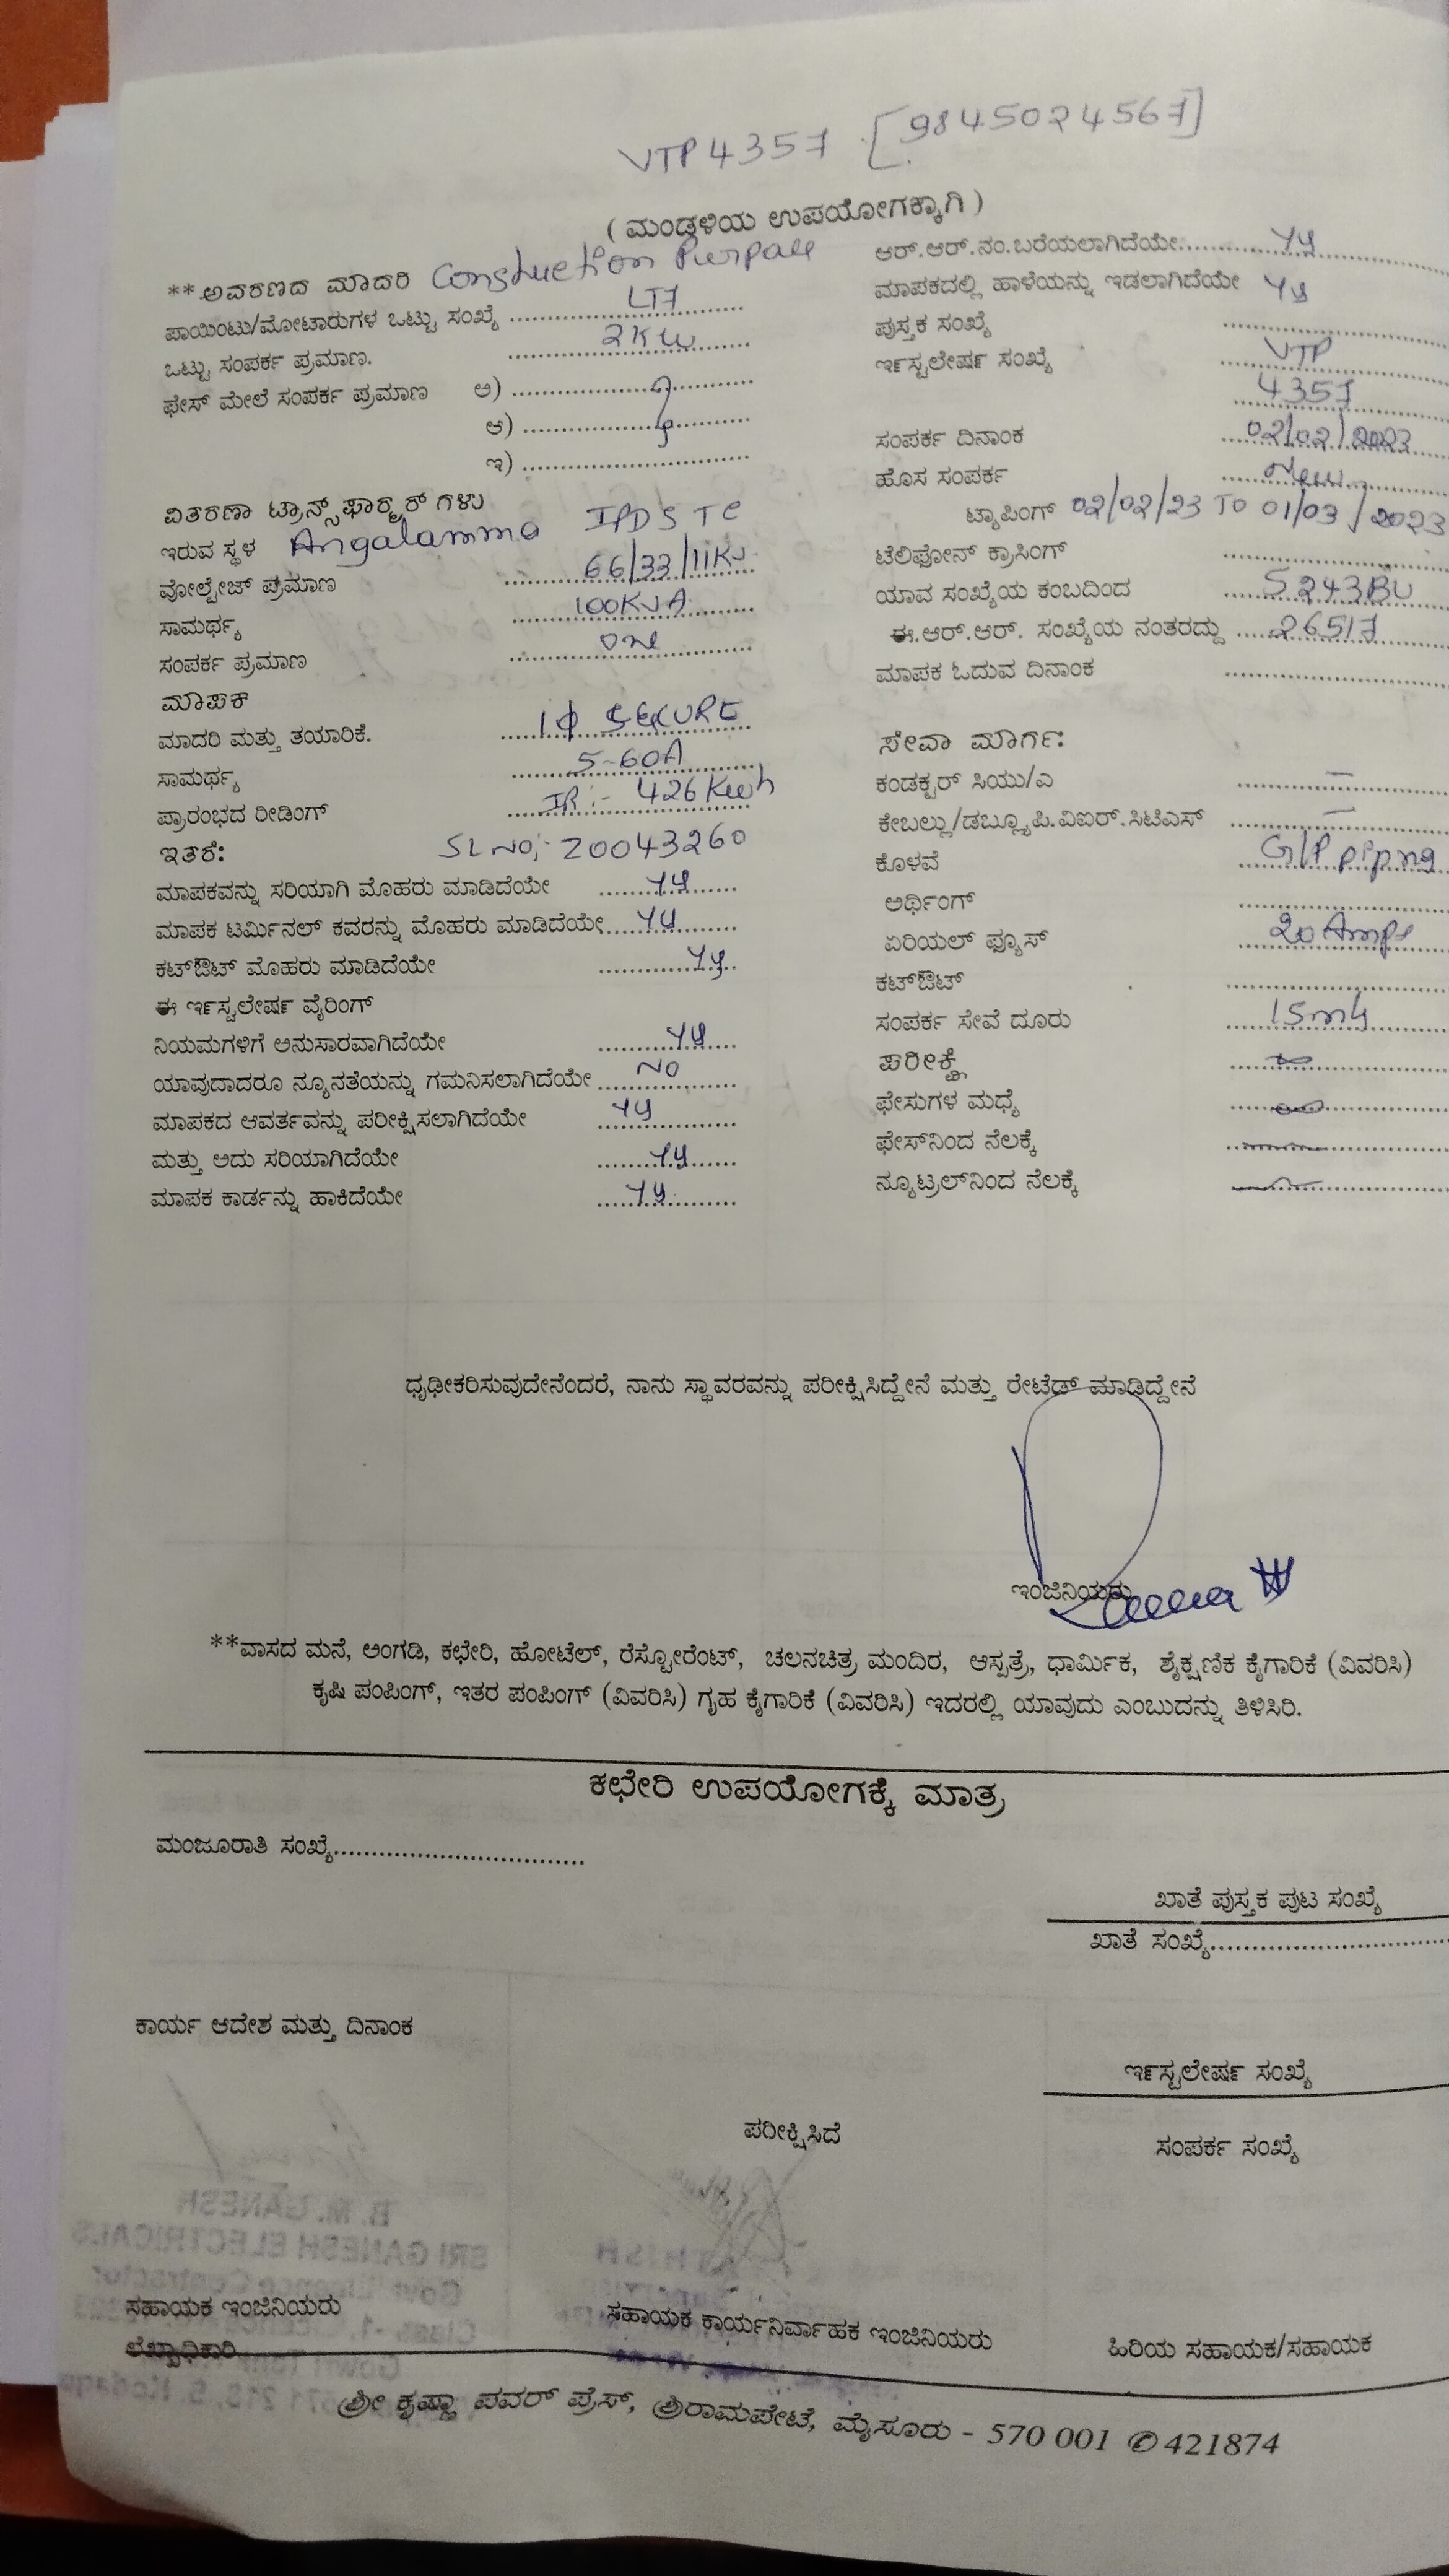 VTP 4357 [9845024567]
( ಮಂಡಳಿಯ ಉಪಯೋಗಕ್ಕಾಗಿ )
**ಅವರಣದ ಮಾದರಿ Constuction Purpose
ಪಾಯಿಂಟು/ಮೋಟಾರುಗಳ ಒಟ್ಟು ಸಂಖ್ಯೆ ........ LT7
ಒಟ್ಟು ಸಂಪರ್ಕ ಪ್ರಮಾಣ. ........ 2KW
ಫೇಸ್ ಮೇಲೆ ಸಂಪರ್ಕ ಪ್ರಮಾಣ ಅ) ........
ಆ) ........
ಇ) ........
ವಿತರಣಾ ಟ್ರಾನ್ಸ್‌ಫಾರ್ಮರ್‌ಗಳು
ಇರುವ ಸ್ಥಳ Angalamma IPDS TC
ವೋಲ್ಟೇಜ್ ಪ್ರಮಾಣ ........ 66/33/11KV
ಸಾಮರ್ಥ್ಯ ........ 100KVA
ಸಂಪರ್ಕ ಪ್ರಮಾಣ ........ one
ಮಾಪಕ
ಮಾದರಿ ಮತ್ತು ತಯಾರಿಕೆ. ........ 1ф SECURE
ಸಾಮರ್ಥ್ಯ ........ 5-60A
ಪ್ರಾರಂಭದ ರೀಡಿಂಗ್ ........ IR:- 426 Kwh
ಇತರೆ: SL NO;- 20043260
ಮಾಪಕವನ್ನು ಸರಿಯಾಗಿ ಮೊಹರು ಮಾಡಿದೆಯೇ ........ yy
ಮಾಪಕ ಟರ್ಮಿನಲ್ ಕವರನ್ನು ಮೊಹರು ಮಾಡಿದೆಯೇ ........ yy
ಕಟ್‌ಔಟ್ ಮೊಹರು ಮಾಡಿದೆಯೇ ........ yy
ಈ ಇನ್‌ಸ್ಟಲೇಷನ್ ವೈರಿಂಗ್
ನಿಯಮಗಳಿಗೆ ಅನುಸಾರವಾಗಿದೆಯೇ ........ yy
ಯಾವುದಾದರೂ ನ್ಯೂನತೆಯನ್ನು ಗಮನಿಸಲಾಗಿದೆಯೇ ........ NO
ಮಾಪಕದ ಆವರ್ತವನ್ನು ಪರೀಕ್ಷಿಸಲಾಗಿದೆಯೇ ........ yy
ಮತ್ತು ಅದು ಸರಿಯಾಗಿದೆಯೇ ........ yy
ಮಾಪಕ ಕಾರ್ಡನ್ನು ಹಾಕಿದೆಯೇ ........ yy
ಆರ್.ಆರ್.ನಂ.ಬರೆಯಲಾಗಿದೆಯೇ ........ yy
ಮಾಪಕದಲ್ಲಿ ಹಾಳೆಯನ್ನು ಇಡಲಾಗಿದೆಯೇ yy
ಪುಸ್ತಕ ಸಂಖ್ಯೆ ........
ಇನ್‌ಸ್ಟಲೇಷನ್ ಸಂಖ್ಯೆ ........ VTP
4357
ಸಂಪರ್ಕ ದಿನಾಂಕ ........ 02/02/2023
ಹೊಸ ಸಂಪರ್ಕ ........ New
ಟ್ಯಾಪಿಂಗ್ 02/02/23 TO 01/03/2023
ಟೆಲಿಫೋನ್ ಕ್ರಾಸಿಂಗ್ ........
ಯಾವ ಸಂಖ್ಯೆಯ ಕಂಬದಿಂದ ........ S243BU
ಈ.ಆರ್.ಆರ್. ಸಂಖ್ಯೆಯ ನಂತರದ್ದು ........ 26517
ಮಾಪಕ ಓದುವ ದಿನಾಂಕ ........
ಸೇವಾ ಮಾರ್ಗ:
ಕಂಡಕ್ಟರ್ ಸಿಯು/ಎ ........ —
ಕೇಬಲ್ಲು/ಡಬ್ಲ್ಯೂಪಿ.ವಿಐರ್.ಸಿಟಿಎಸ್ ........ —
ಕೊಳವೆ ........ GIP piping
ಅರ್ಥಿಂಗ್ ........
ಏರಿಯಲ್ ಫ್ಯೂಸ್ ........ 20 Amps
ಕಟ್‌ಔಟ್ ........
ಸಂಪರ್ಕ ಸೇವೆ ದೂರು ........ 15mts
ಪರೀಕ್ಷೆ ........
ಫೇಸುಗಳ ಮಧ್ಯೆ ........
ಫೇಸ್‌ನಿಂದ ನೆಲಕ್ಕೆ ........
ನ್ಯೂಟ್ರಲ್‌ನಿಂದ ನೆಲಕ್ಕೆ ........
ಧೃಢೀಕರಿಸುವುದೇನೆಂದರೆ, ನಾನು ಸ್ಥಾವರವನ್ನು ಪರೀಕ್ಷಿಸಿದ್ದೇನೆ ಮತ್ತು ರೇಟೆಡ್ ಮಾಡಿದ್ದೇನೆ
ಇಂಜಿನಿಯರು
**ವಾಸದ ಮನೆ, ಅಂಗಡಿ, ಕಛೇರಿ, ಹೋಟೆಲ್, ರೆಸ್ಟೋರೆಂಟ್, ಚಲನಚಿತ್ರ ಮಂದಿರ, ಆಸ್ಪತ್ರೆ, ಧಾರ್ಮಿಕ, ಶೈಕ್ಷಣಿಕ ಕೈಗಾರಿಕೆ (ವಿವರಿಸಿ)
ಕೃಷಿ ಪಂಪಿಂಗ್, ಇತರ ಪಂಪಿಂಗ್ (ವಿವರಿಸಿ) ಗೃಹ ಕೈಗಾರಿಕೆ (ವಿವರಿಸಿ) ಇದರಲ್ಲಿ ಯಾವುದು ಎಂಬುದನ್ನು ತಿಳಿಸಿರಿ.
ಕಛೇರಿ ಉಪಯೋಗಕ್ಕೆ ಮಾತ್ರ
ಮಂಜೂರಾತಿ ಸಂಖ್ಯೆ........
ಖಾತೆ ಪುಸ್ತಕ ಪುಟ ಸಂಖ್ಯೆ
ಖಾತೆ ಸಂಖ್ಯೆ........
ಕಾರ್ಯ ಆದೇಶ ಮತ್ತು ದಿನಾಂಕ
ಇನ್‌ಸ್ಟಲೇಷನ್ ಸಂಖ್ಯೆ
ಪರೀಕ್ಷಿಸಿದೆ
ಸಂಪರ್ಕ ಸಂಖ್ಯೆ
ಸಹಾಯಕ ಇಂಜಿನಿಯರು
ಸಹಾಯಕ ಕಾರ್ಯನಿರ್ವಾಹಕ ಇಂಜಿನಿಯರು
ಹಿರಿಯ ಸಹಾಯಕ/ಸಹಾಯಕ
ಲೆಖ್ಖಾಧಿಕಾರಿ
ಶ್ರೀ ಕೃಷ್ಣಾ ಪವರ್ ಪ್ರೆಸ್, ಶ್ರೀರಾಮಪೇಟೆ, ಮೈಸೂರು - 570 001 ✆ 421874